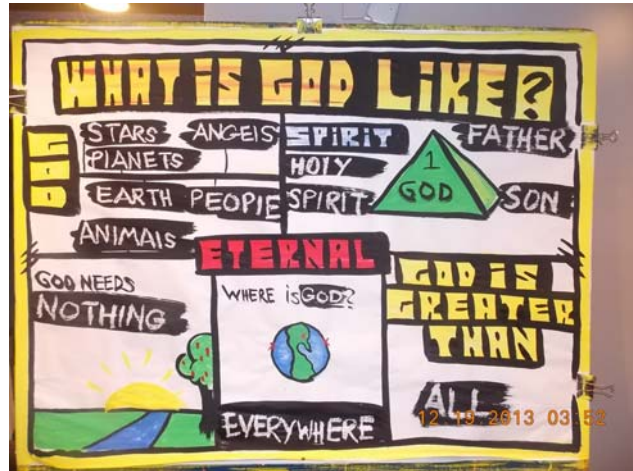 WHAT IS GOD LIKE?
GOD
STARS ANGElS
PLANETS
EARTH PEOPlE
ANIMAlS
SPIRIT
HOLY
SPIRIT
1
GOD
FATHER
SON
ETERNAL
GOD NEEDS
NOTHING
WHERE is GOD?
EVERYWHERE
GOD iS
GREATER
THAN
ALL
12 19 2013 03 52